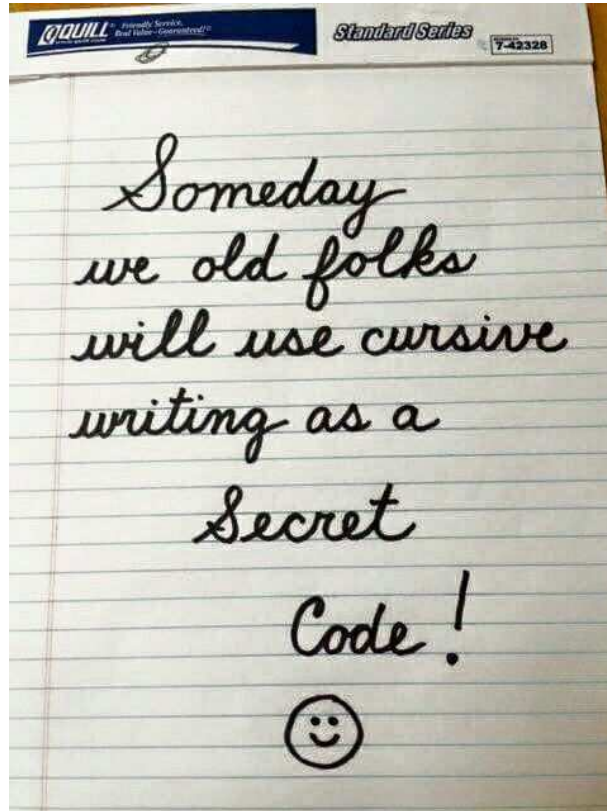 QUILL Friendly Service.
Real Value - Guaranteed!
Standard Series
7-42328
Someday
we old folks
will use cursive
writing as a
Secret
Code!